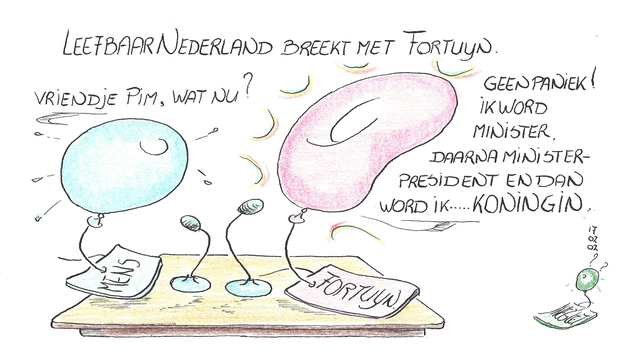 LEEFBAAR NEDERLAND BREEKT MET FORTUYN.
VRIENDJE PIM, WAT NU?
GEEN PANIEK!
IK WORD
MINISTER,
DAARNA MINISTER-
PRESIDENT EN DAN
WORD IK.....KONINGIN.
MENS
FORTUYN
17
02
02